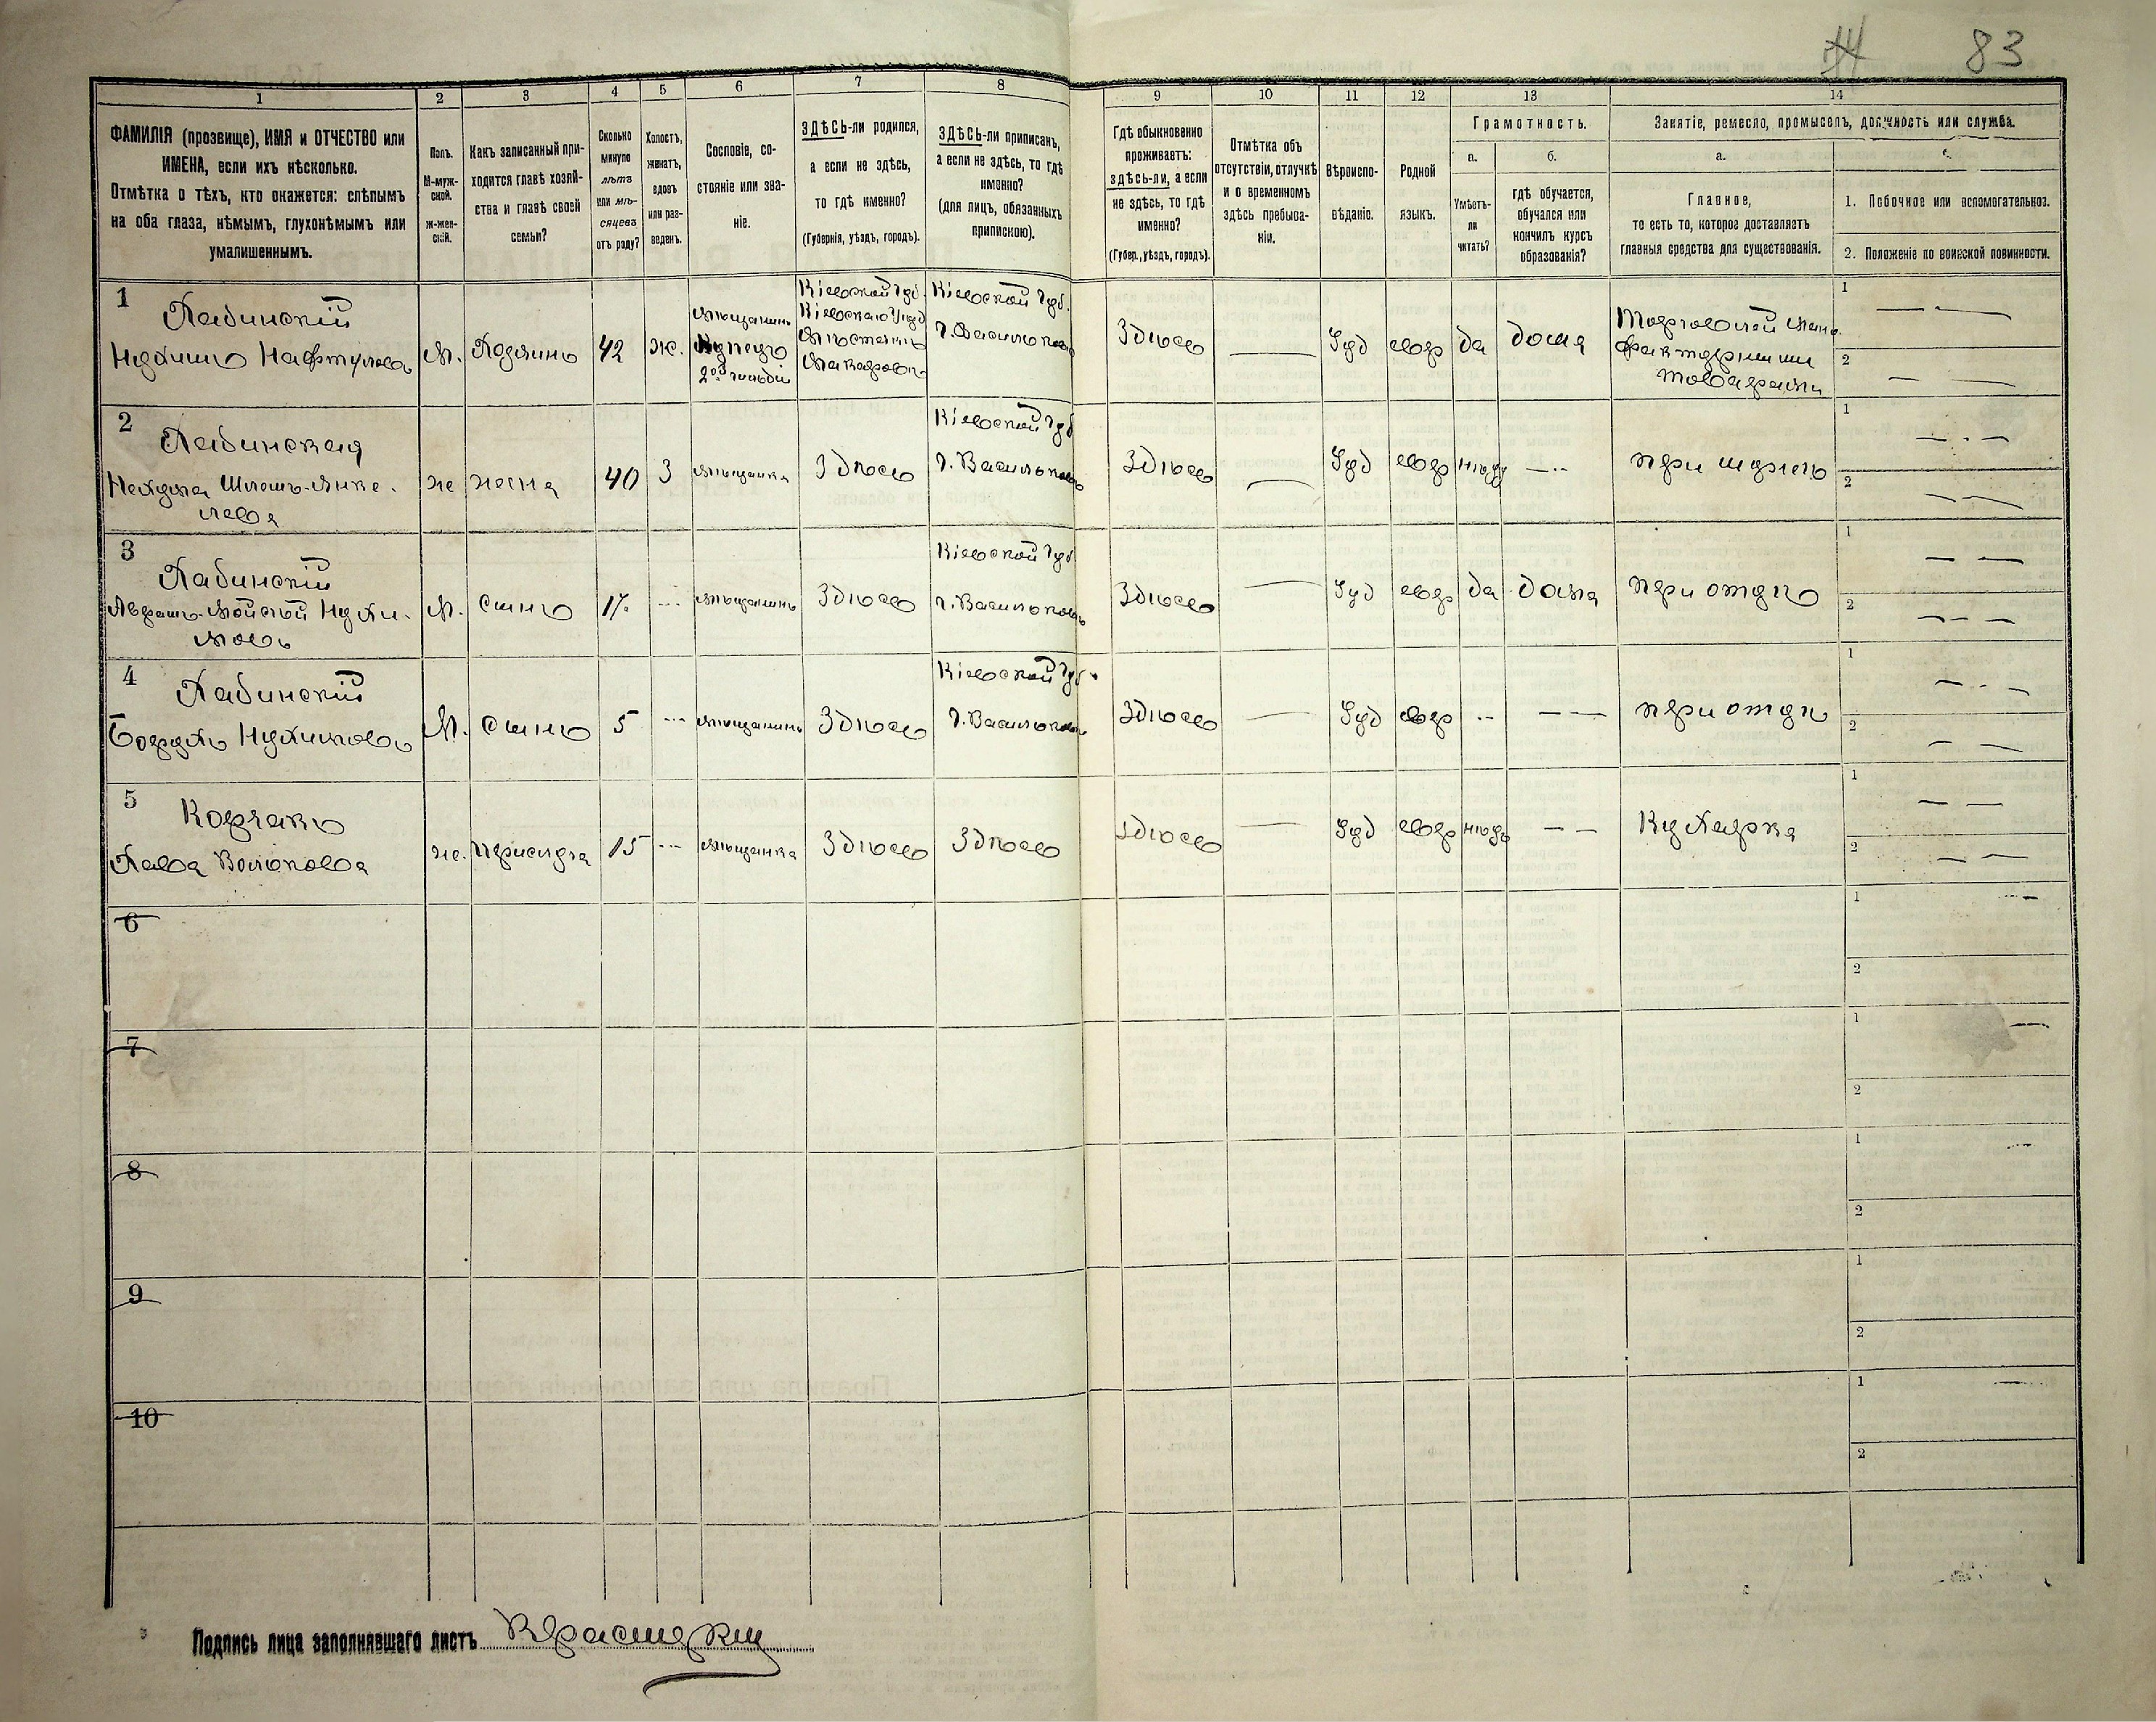 83
1 2 3 4 5 6 7 8 9 10 11 12 13 14
ФАМИЛІЯ (прозвище), ИМЯ и ОТЧЕСТВО или
ИМЕНА, если ихъ нѣсколько.
Отмѣтка о тѣхъ, кто окажется: слѣпымъ
на оба глаза, нѣмымъ, глухонѣмымъ или
умалишеннымъ.
Полъ.
М-муж-
ской.
ж-жен-
скій.
Какъ записанный при-
ходится главѣ хозяй-
ства и главѣ своей
семьи?
Сколько
минуло
лѣтъ
или мѣ-
сяцевъ
отъ роду?
Холостъ,
женатъ,
вдовъ
или раз-
веденъ.
Сословіе, со-
стояніе или зва-
ніе.
ЗДѢСЬ-ли родился,
а если не здѣсь,
то гдѣ именно?
(Губернія, уѣздъ, городъ).
ЗДѢСЬ-ли приписанъ,
а если не здѣсь, то гдѣ
именно?
(для лицъ, обязанныхъ
припискою).
Гдѣ обыкновенно
проживаетъ:
здѣсь-ли, а если
не здѣсь, то гдѣ
именно?
(Губер., уѣздъ, городъ).
Отмѣтка объ
отсутствіи, отлучкѣ
и о временномъ
здѣсь пребыва-
ніи.
Вѣроиспо-
вѣданіе.
Родной
языкъ.
Грамотность.
а.
Умѣетъ-
ли
читать?
б.
гдѣ обучается,
обучался или
кончилъ курсъ
образованія?
Занятіе, ремесло, промыселъ, должность или служба.
а.
Главное,
то есть то, которое доставляетъ
главныя средства для существованія.
1. Побочное или вспомогательноэ.
2. Положеніе по воинской повинности.
1
Хабинскій
Нухимъ Нафтулевъ
М.
Хозяинъ
42
ж.
мѣщанинъ
Купецъ
2ой гильдіи
Кіевской губ.
Кіевскаго Уѣзд
Мѣстечка
Макарова
Кіевской губ.
г. Васильковъ
Здѣсь
Іуд
евр
да
дома
Торговлей ману
фактурными
товарами
1
2
2
Хабинская
Нехума Шлемъ-Янке-
лева
же
жена
40
З
мѣщанка
Здѣсь
Кіевской губ
г. Васильковъ
Здѣсь
Іуд
евр
нѣтъ
при мужѣ
1
2
3
Хабинскій
Аврамъ-Мойсей Нухи-
мовъ
М.
сынъ
17
мѣщанинъ
Здѣсь
Кіевской губ
г. Васильковъ
Здѣсь
Іуд
евр
да
дома
при отцѣ
1
2
4
Хабинскій
Борухъ Нухимовъ
М.
сынъ
5
мѣщанинъ
Здѣсь
Кіевской губ.
г. Васильковъ
Здѣсь
Іуд
евр
при отцѣ
1
2
5
Корчакъ
Хава Вольковa
же.
прислуга
15
мѣщанка
Здѣсь
Здѣсь
Здѣсь
Іуд
евр
нѣтъ
Кухарка
1
2
6
1
2
7
1
2
8
1
2
9
1
2
10
1
2
Подпись лица заполнявшаго листъ